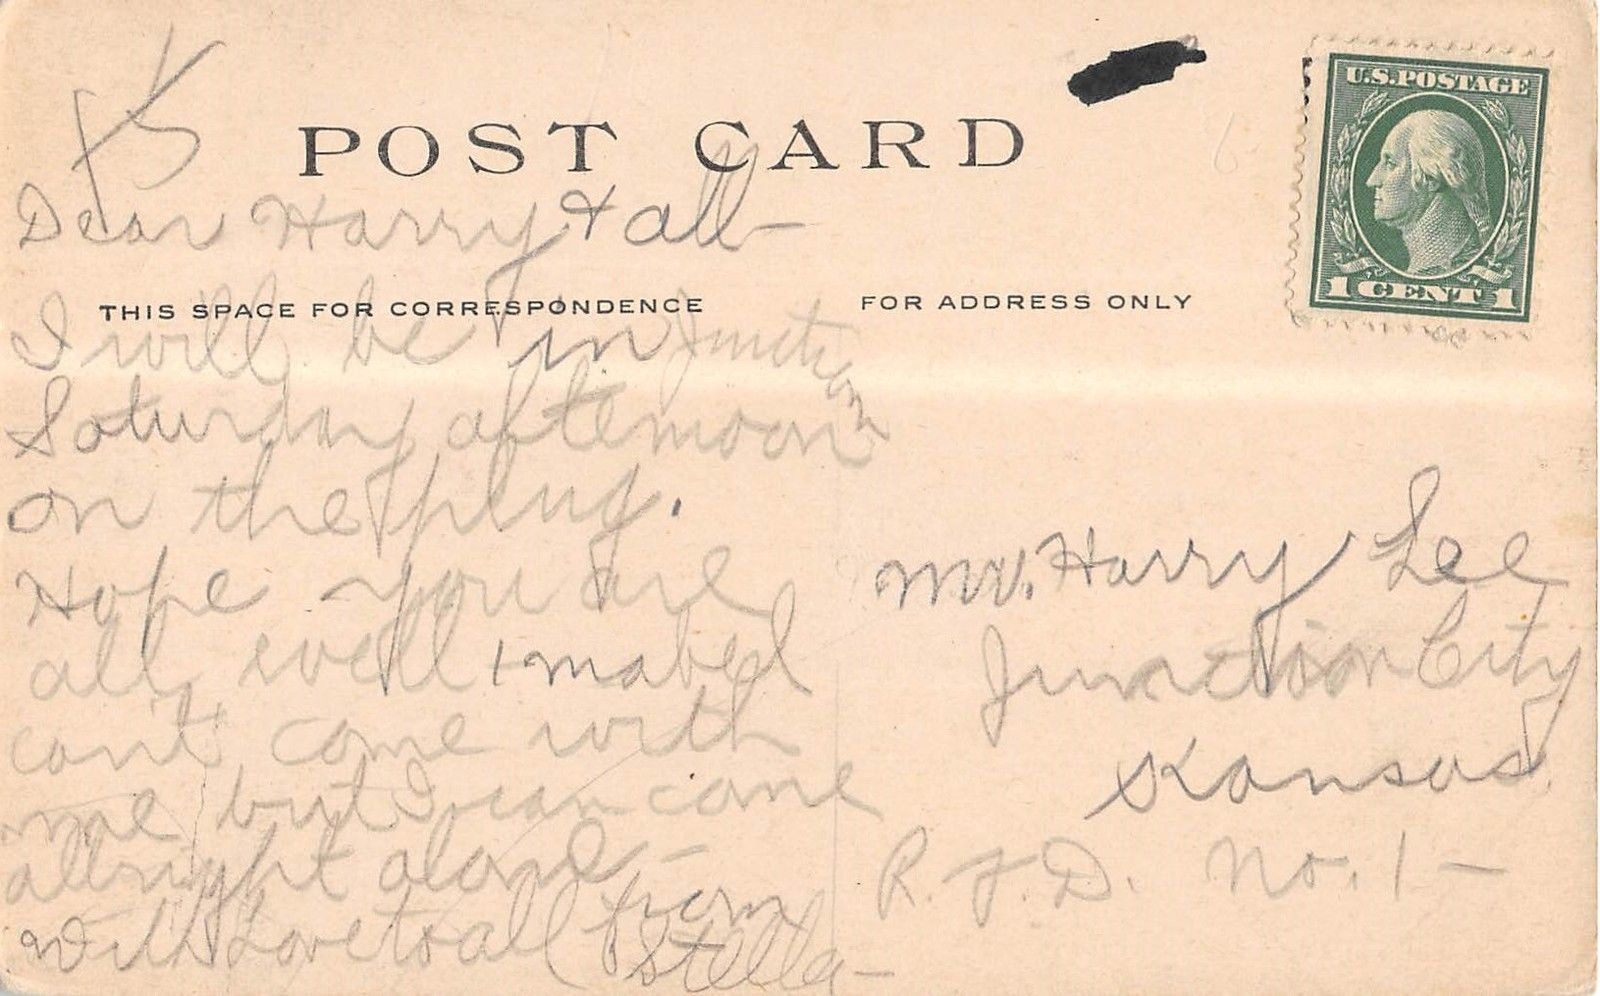 POST CARD
THIS SPACE FOR CORRESPONDENCE
Dear Harry & all—
I will be in Junction
Saturday afternoon
on the plug.
Hope you are
all well & mabel
cant come with
me but I can come
allright alone—
With Love to all from
Stella—
FOR ADDRESS ONLY
U.S. POSTAGE
1 CENT 1
Mr. Harry Lee
Junction City
Kansas.
R.F.D. No. 1—